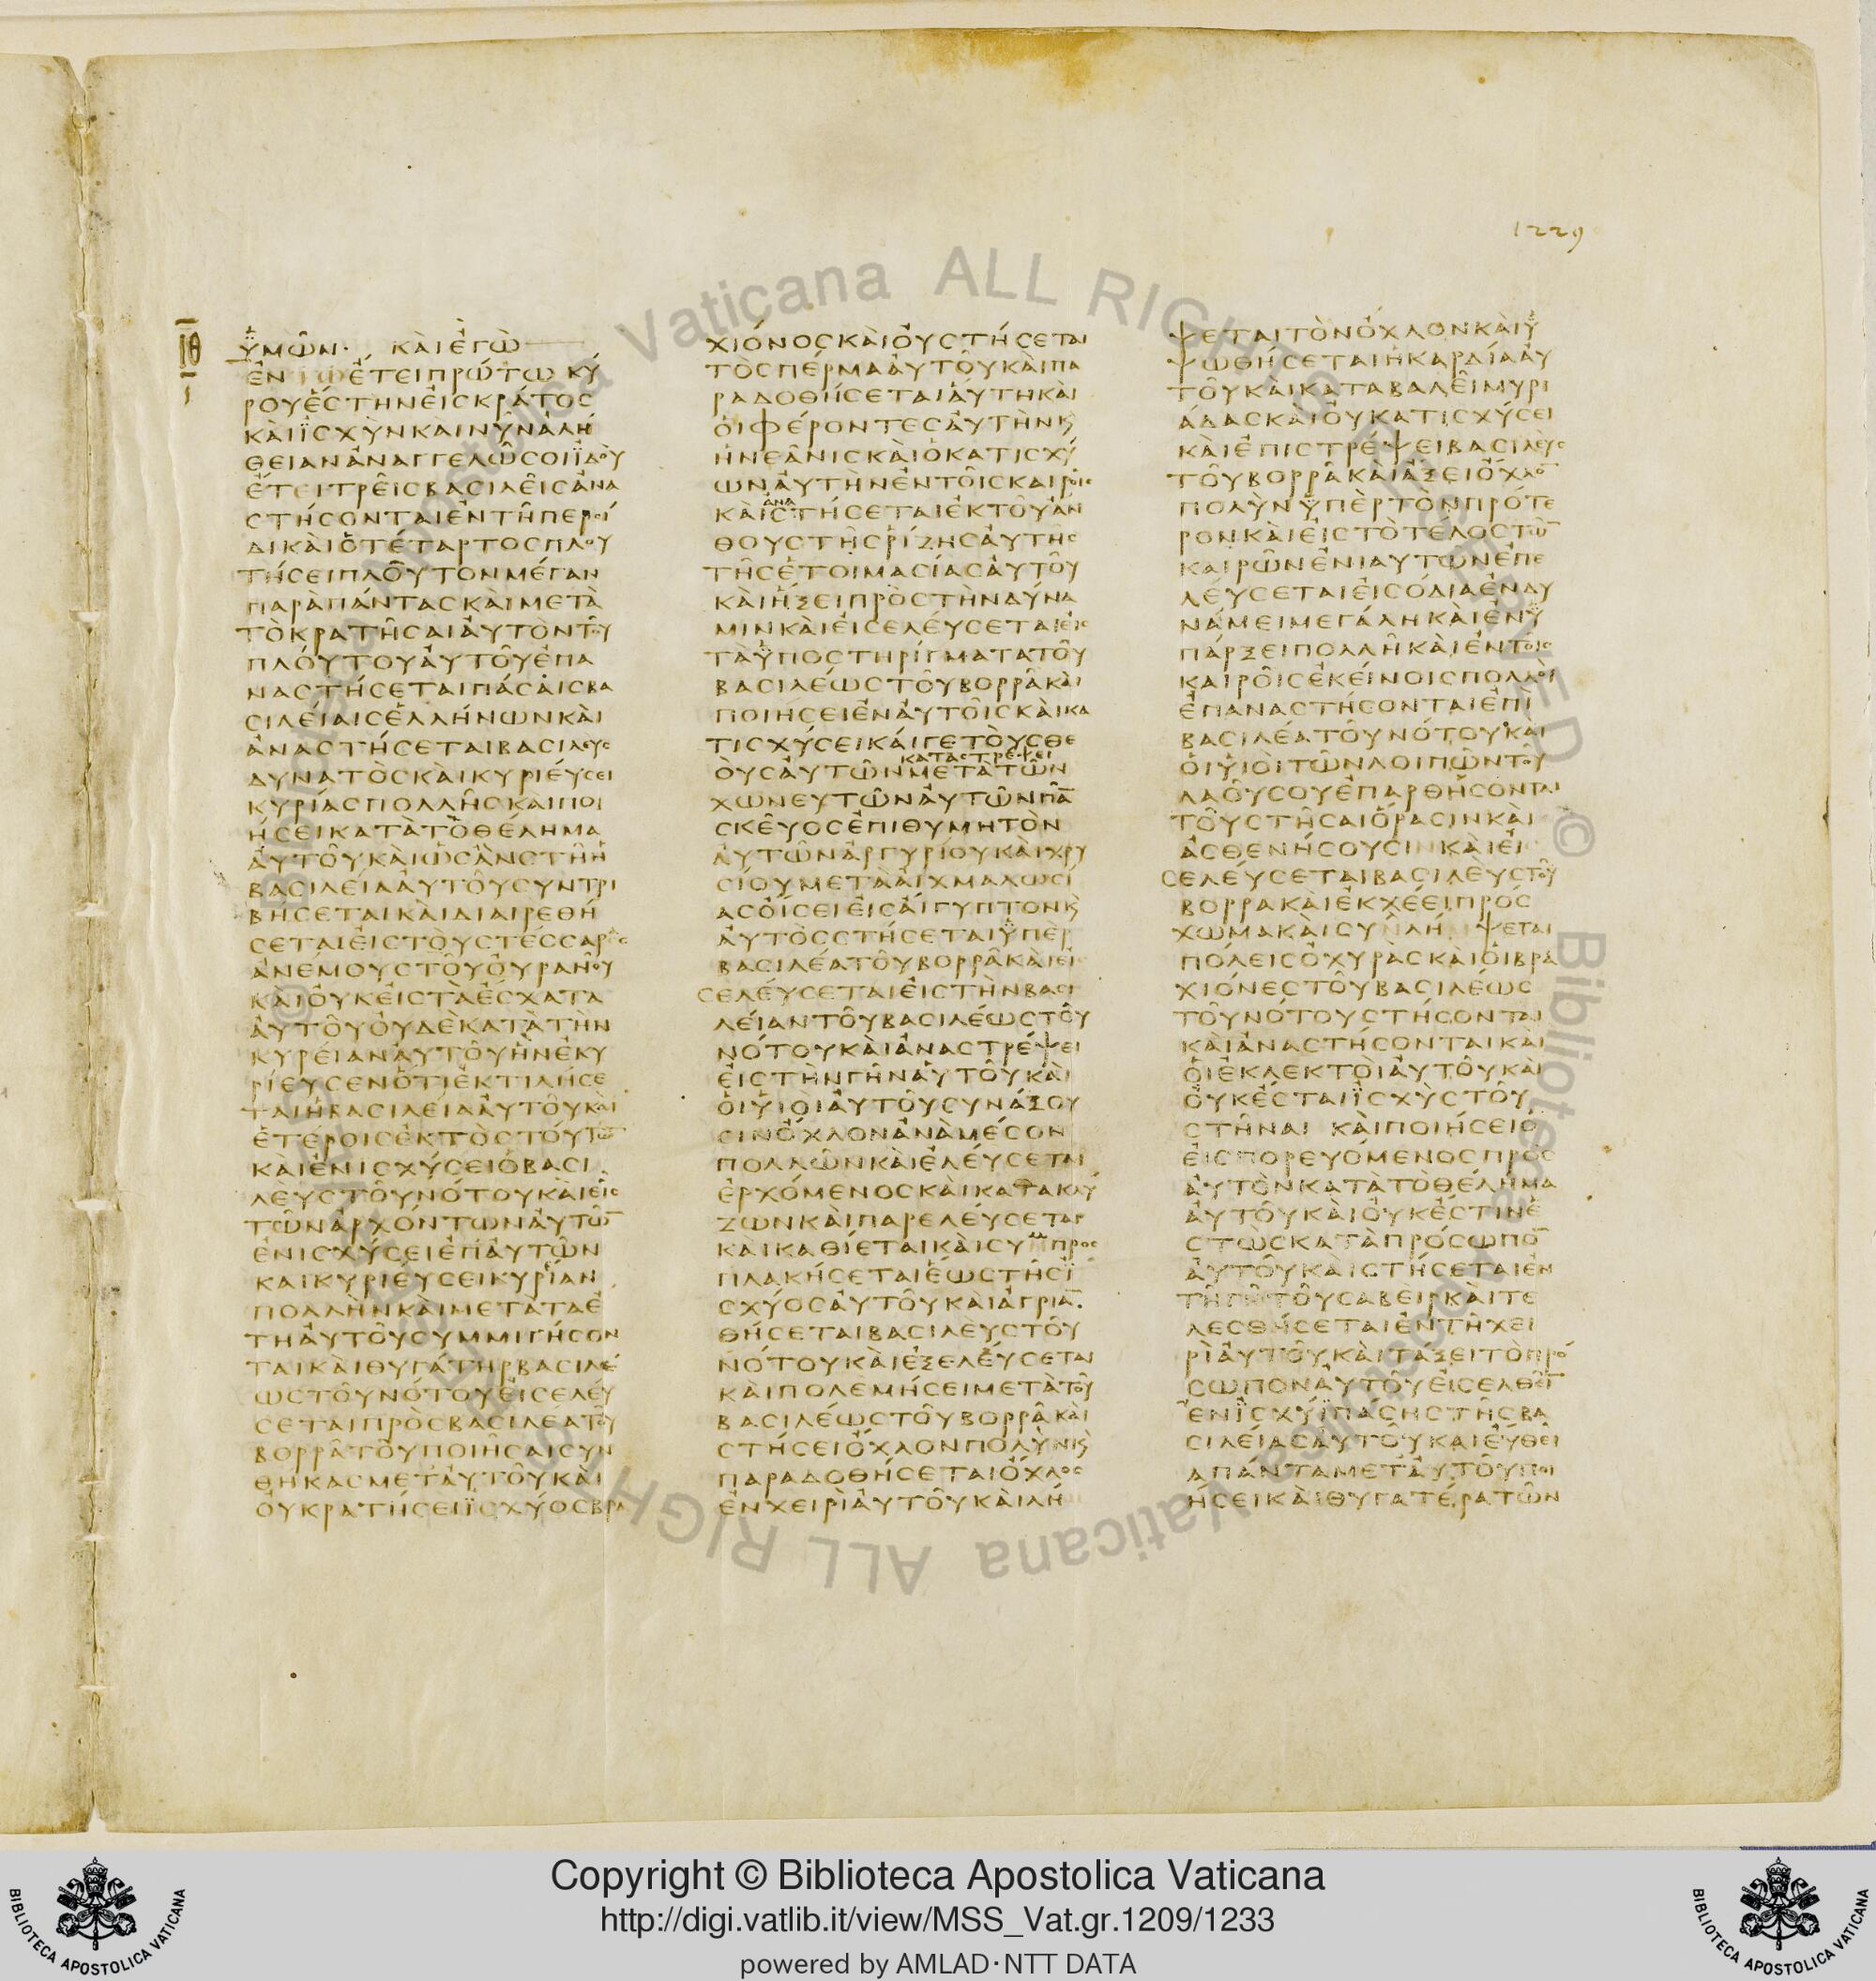 1229
ΙΘ
ὙΜΩ͂Ν· ΚΑῚ ἘΓῺ
ἘΝ ἜΤΕΙ ΠΡΏΤΩ ΚΎ
ΡΟΥ ἜΣΤΗΝ ΕἸΣ ΚΡΆΤΟΣ
ΚΑῚ ἸΣΧῪΝ ΚΑΙ ΝΥ͂Ν ἈΛΉ
ΘΕΙΑΝ ἈΝΑΓΓΕΛΩ͂ ΣΟΙ ἸΔΟῪ
ἜΤΕΙ ΤΡΕΙ͂Σ ΒΑΣΙΛΕΙ͂Σ ἈΝΑ
ΣΤΉΣΟΝΤΑΙ ἘΝ ΤΗ͂ ΠΕΡΣΊ
ΔΙ ΚΑῚ Ὁ ΤΈΤΑΡΤΟΣ ΠΛΟΥ
ΤΉΣΕΙ ΠΛΟΥ͂ΤΟΝ ΜΈΓΑΝ
ΠΑΡᾺ ΠΆΝΤΑΣ ΚΑῚ ΜΕΤᾺ
ΤῸ ΚΡΑΤΗ͂ΣΑΙ ἈΥΤῸΝ ΤΟΥ͂
ΠΛΟΎΤΟΥ ἈΥΤΟΥ͂ ἘΠΑ
ΝΑΣΤΉΣΕΤΑΙ ΠΆΣΑΙΣ ΒΑ
ΣΙΛΕΊΑΙΣ ἙΛΛΉΝΩΝ ΚΑῚ
ἈΝΑΣΤΉΣΕΤΑΙ ΒΑΣΙΛΕῪΣ
ΔΥΝΑΤῸΣ ΚΑῚ ΚΥΡΙΕΎΣΕΙ
ΚΥΡΊΑΣ ΠΟΛΛΗ͂Σ ΚΑῚ ΠΟΙ
ΉΣΕΙ ΚΑΤᾺ ΤῸ ΘΈΛΗΜΑ
ἈΥΤΟΥ͂ ΚΑῚ ὩΣ ἊΝ ΣΤΗ͂ Ἡ
ΒΑΣΙΛΕΊΑ ἈΥΤΟΥ͂ ΣΥΝΤΡΙ
ΒΉΣΕΤΑΙ ΚΑῚ ΔΙΑΙΡΕΘΉ
ΣΕΤΑΙ ΕἸΣ ΤΟῪΣ ΤΈΣΣΑΡΑΣ
ἈΝΈΜΟΥΣ ΤΟΥ͂ ΟὐΡΑΝΟΥ͂
ΚΑῚ ΟὐΚ ΕἸΣ ΤᾺ ἜΣΧΑΤΑ
ἈΥΤΟΥ͂ ΟὐΔῈ ΚΑΤᾺ ΤῊΝ
ΚΥΡΕΊΑΝ ἈΥΤΟΥ͂ ἫΝ ἘΚΥ
ΡΊΕΥΣΕΝ ὍΤΙ ἘΚΤΙΛΉΣΕ
ΤΑΙ Ἡ ΒΑΣΙΛΕΊΑ ἈΥΤΟΥ͂ ΚΑῚ
ἙΤΈΡΟΙΣ ἘΚΤῸΣ ΤΟΎΤΩ̅
ΚΑῚ ἘΝΙΣΧΎΣΕΙ Ὁ ΒΑΣΙ
ΛΕῪΣ ΤΟΥ͂ ΝΌΤΟΥ ΚΑῚ ΕἿΣ
ΤΩ͂Ν ἈΡΧΌΝΤΩΝ ἈΥΤΩ̅
ἘΝΙΣΧΎΣΕΙ ἘΠ ἈΥΤΩ͂Ν
ΚΑΙ ΚΥΡΙΕΎΣΕΙ ΚΥΡΊΑΝ
ΠΟΛΛῊΝ ΚΑῚ ΜΕΤᾺ ΤΑ Ἐ
ΤΗ ἈΥΤΟΥ͂ ΣΥΜΜΙΓΉΣΟΝ
ΤΑΙ ΚΑῚ ΘΥΓΆΤΗΡ ΒΑΣΙΛΈ
ΩΣ ΤΟΥ͂ ΝΌΤΟΥ ΕἸΣΕΛΕΎ
ΣΕΤΑΙ ΠΡῸΣ ΒΑΣΙΛΈΑ ΤΟΥ͂
ΒΟΡΡΑ͂ ΤΟΥ͂ ΠΟΙΗ͂ΣΑΙ ΣΥΝ
ΘΗΚΑΣ ΜΕΤ ἈΥΤΟΥ͂ ΚΑῚ
ΟὐΚΡΑΤΉΣΕΙ ἸΣΧΎΟΣ ΒΡΑ
ΧΙΌΝΟΣ ΚΑῚ ΟὐΣΤΉΣΕΤΑΙ
ΤῸ ΣΠΈΡΜΑ ἈΥΤΟΥ͂ ΚΑῚ ΠΑ
ΡΑΔΟΘΉΣΕΤΑΙ ἈΥΤΗ ΚΑῚ
ΟἹ ΦΈΡΟΝΤΕΣ ἈΥΤῊΝ Κ̀
Ἡ ΝΕΑ͂ΝΙΣ ΚΑῚ Ὁ ΚΑΤΙΣΧΎ
ΩΝ ἈΥΤῊΝ ἘΝ ΤΟΙ͂Σ ΚΑΙΡΟΙ͂Σ
ΑΝΑ
ΚΑῚ ΣΤΉΣΕΤΑΙ ἘΚ ΤΟΥ͂ ἌΝ
ΘΟΥΣ ΤΗ͂Σ ῬΊΖΗΣ ἈΥΤΗ͂Σ
ΤΗ͂Σ ἙΤΟΙΜΑΣΊΑΣ ἈΥΤΟΥ͂
ΚΑῚ ἭΞΕΙ ΠΡῸΣ ΤῊΝ ΔΎΝΑ
ΜΙΝ ΚΑῚ ΕἸΣΕΛΕΎΣΕΤΑΙ ΕἸΣ
ΤᾺ ὙΠΟΣΤΗΡΊΓΜΑΤΑ ΤΟΥ͂
ΒΑΣΙΛΈΩΣ ΤΟΥ͂ ΒΟΡΡΑ͂ ΚΑῚ
ΠΟΙΗΣΕΙ ἘΝ ἈΥΤΟΙ͂Σ ΚΑῚ ΚΑ
ΤΙΣΧΎΣΕΙ ΚΑΊΓΕ ΤΟῪΣ ΘΕ
ΚΑΤΑΣΤΡΕΨΕΙ
ΟῪΣ ἈΥΤΩ͂Ν ΜΕΤᾺ ΤΩ͂Ν
ΧΩΝΕΥΤΩ͂Ν ἈΥΤΩ͂Ν ΠΑ̅
ΣΚΕΥ͂ΟΣ ἘΠΙΘΥΜΗΤῸΝ
ἈΥΤΩ͂Ν ἈΡΓΥΡΊΟΥ ΚΑῚ ΧΡΥ
ΣΊΟΥ ΜΕΤᾺ ἈΙΧΜΑΛΩΣΊ
ΑΣ ΟἼΣΕΙ ΕἸΣ ἌΙΓΥΠΤΟΝ Κ̀
ἈΥΤῸΣ ΣΤΉΣΕΤΑΙ ὙΠῈΡ
ΒΑΣΙΛΈΑ ΤΟΥ͂ ΒΟΡΡΑ͂ ΚΑῚ ΕἸ
ΣΕΛΕΎΣΕΤΑΙ ΕἸΣ ΤῊΝ ΒΑΣΙ
ΛΕΊΑΝ ΤΟΥ͂ ΒΑΣΙΛΈΩΣ ΤΟΥ͂
ΝΌΤΟΥ ΚΑῚ ἈΝΑΣΤΡΈΨΕΙ
ΕἸΣ ΤῊΝ ΓΗ͂Ν ἈΥΤΟΥ͂ ΚΑῚ
ΟἹ ὙΙΟῚ ἈΥΤΟΥ͂ ΣΥΝΆΞΟΥ
ΣΙΝ ὌΧΛΟΝ ἈΝᾺ ΜΈΣΟΝ
ΠΟΛΛΩ͂Ν ΚΑῚ ἘΛΕΎΣΕΤΑΙ
ἘΡΧΌΜΕΝΟΣ ΚΑῚ ΚΑΤΑΚΛΎ
ΖΩΝ ΚΑῚ ΠΑΡΕΛΕΎΣΕΤΑΙ
ΚΑῚ ΚΑΘΊΕΤΑΙ ΚΑῚ ΣΥΜΠΡΟΣ
ΠΛΑΚΉΣΕΤΑΙ ἝΩΣ ΤΗ͂Σ Ἰ
ΣΧΎΟΣ ἈΥΤΟΥ͂ ΚΑῚ ἈΓΡΙΑ̅
ΘΉΣΕΤΑΙ ΒΑΣΙΛΕῪΣ ΤΟΥ͂
ΝΌΤΟΥ ΚΑῚ ἘΞΕΛΕΎΣΕΤΑΙ
ΚΑῚ ΠΟΛΕΜΉΣΕΙ ΜΕΤᾺ ΤΟΥ͂
ΒΑΣΙΛΈΩΣ ΤΟΥ͂ ΒΟΡΡΑ͂ ΚΑῚ
ΣΤΉΣΕΙ ὌΧΛΟΝ ΠΟΛῪΝ Κ̀
ΠΑΡΑΔΟΘΉΣΕΤΑΙ ὌΧΛΟΣ
ἘΝ ΧΕΙΡῚ ἈΥΤΟΥ͂ ΚΑῚ ΛΉ
ΨΕΤΑΙ ΤῸΝ ὌΧΛΟΝ ΚΑῚ Ὑ
ΨΩΘΉΣΕΤΑΙ Ἡ ΚΑΡΔΊΑ ἈΥ
ΤΟΥ͂ ΚΑῚ ΚΑΤΑΒΑΛΕΙ͂ ΜΥΡΙ
ΆΔΑΣ ΚΑῚ ΟὐΚΑΤΙΣΧΎΣΕΙ
ΚΑῚ ἘΠΙΣΤΡΈΨΕΙ ΒΑΣΙΛΕῪΣ
ΤΟΥ͂ ΒΟΡΡΑ͂ ΚΑῚ ἌΞΕΙ ὌΧΛΟ̅
ΠΟΛῪΝ ὙΠῈΡ ΤῸΝ ΠΡΌΤΕ
ΡΟΝ ΚΑῚ ΕἸΣ ΤῸ ΤΈΛΟΣ ΤΩ̅
ΚΑΙΡΩ͂Ν ἘΝΙΑΥΤΩ͂Ν ἘΠΕ
ΛΕΎΣΕΤΑΙ ΕἸΣΌΔΙΑ ἘΝ ΔΥ
ΝΆΜΕΙ ΜΕΓΆΛΗ ΚΑῚ ἘΝ Ὑ
ΠΆΡΞΕΙ ΠΟΛΛΗ͂ ΚΑῚ ἘΝ ΤΟΙ͂Σ
ΚΑΙΡΟΙ͂Σ ἘΚΕΊΝΟΙΣ ΠΟΛΛΟῚ
ἘΠΑΝΑΣΤΉΣΟΝΤΑΙ ἘΠῚ
ΒΑΣΙΛΈΑ ΤΟΥ͂ ΝΌΤΟΥ ΚΑΙ
ΟἹ ὙΙΟῚ ΤΩ͂Ν ΛΟΙΠΩ͂Ν ΤΟΥ͂
ΛΑΟΥ͂ ΣΟΥ ἘΠΑΡΘΉΣΟΝΤΑΙ
ΤΟΥ͂ ΣΤΗ͂ΣΑΙ ὍΡΑΣΙΝ ΚΑῚ
ἈΣΘΕΝΉΣΟΥΣΙ ΚΑῚ ΕἸ
ΣΕΛΕΎΣΕΤΑΙ ΒΑΣΙΛΕῪΣ ΤΟΥ͂
ΒΟΡΡΑ ΚΑῚ ἘΚΧΈΕΙ ΠΡΌΣ
ΧΩΜΑ ΚΑῚ ΣΥΝΛΉΜΨΕΤΑΙ
ΠΌΛΕΙΣ ὈΧΥΡᾺΣ ΚΑῚ ΟἹ ΒΡΑ
ΧΙΌΝΕΣ ΤΟΥ͂ ΒΑΣΙΛΈΩΣ
ΤΟΥ͂ ΝΌΤΟΥ ΣΤΉΣΟΝΤΑΙ
ΚΑῚ ἈΝΑΣΤΉΣΟΝΤΑΙ ΚΑῚ
ΟἹ ἘΚΛΕΚΤΟῚ ἈΥΤΟΥ͂ ΚΑῚ
ΟὐΚ ἜΣΤΑΙ ἸΣΧῪΣ ΤΟΥ͂
ΣΤΗ͂ΝΑΙ ΚΑῚ ΠΟΙΉΣΕΙ Ὁ
ΕἸΣΠΟΡΕΥΌΜΕΝΟΣ ΠΡῸΣ
ἈΥΤῸΝ ΚΑΤᾺ ΤῸ ΘΈΛΗΜΑ
ἈΥΤΟΥ͂ ΚΑῚ ΟὐΚ ἜΣΤΙΝ Ἑ
ΣΤῺΣ ΚΑΤᾺ ΠΡΌΣΩΠΟ̅
ἈΥΤΟΥ͂ ΚΑῚ ΣΤΉΣΕΤΑΙ ἘΝ
ΤΗ͂ ΓΗ͂ ΤΟΥ͂ ΣΑΒΕῚΡ ΚΑῚ ΤΕ
ΛΕΣΘΉΣΕΤΑΙ ἘΝ ΤΗ͂ ΧΕΙ
ΡῚ ἈΥΤΟΥ͂ ΚΑῚ ΤΆΞΕΙ ΤῸ ΠΡΌ
ΣΩΠΟΝ ἈΥΤΟΥ͂ ΕἸΣΕΛΘΕΙ̅
ἘΝ ἸΣΧΎΪ ΠΆΣΗΣ ΤΗ͂Σ ΒΑ
ΣΙΛΕΊΑΣ ἈΥΤΟΥ͂ ΚΑῚ ΕὐΘΕΙ
Α ΠΆΝΤΑ ΜΕΤ ἈΥΤΟΥ͂ ΠΟΙ
ΉΣΕΙ ΚΑῚ ΘΥΓΑΤΈΡΑ ΤΩ͂Ν
Copyright © Biblioteca Apostolica Vaticana
http://digi.vatlib.it/view/MSS_Vat.gr.1209/1233
powered by AMLAD·NTT DATA
BIBLIOTECA APOSTOLICA VATICANA
BIBLIOTECA APOSTOLICA VATICANA